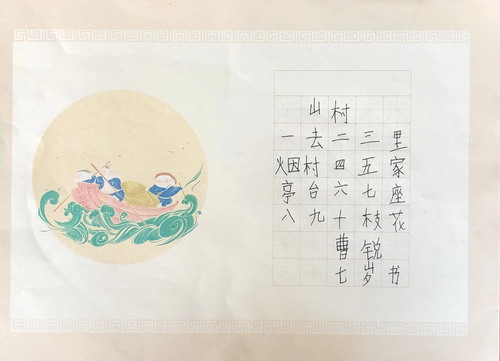 山村
一去二三里
烟村四五家
亭台六七座
八九十枝花
曹锐
七岁书